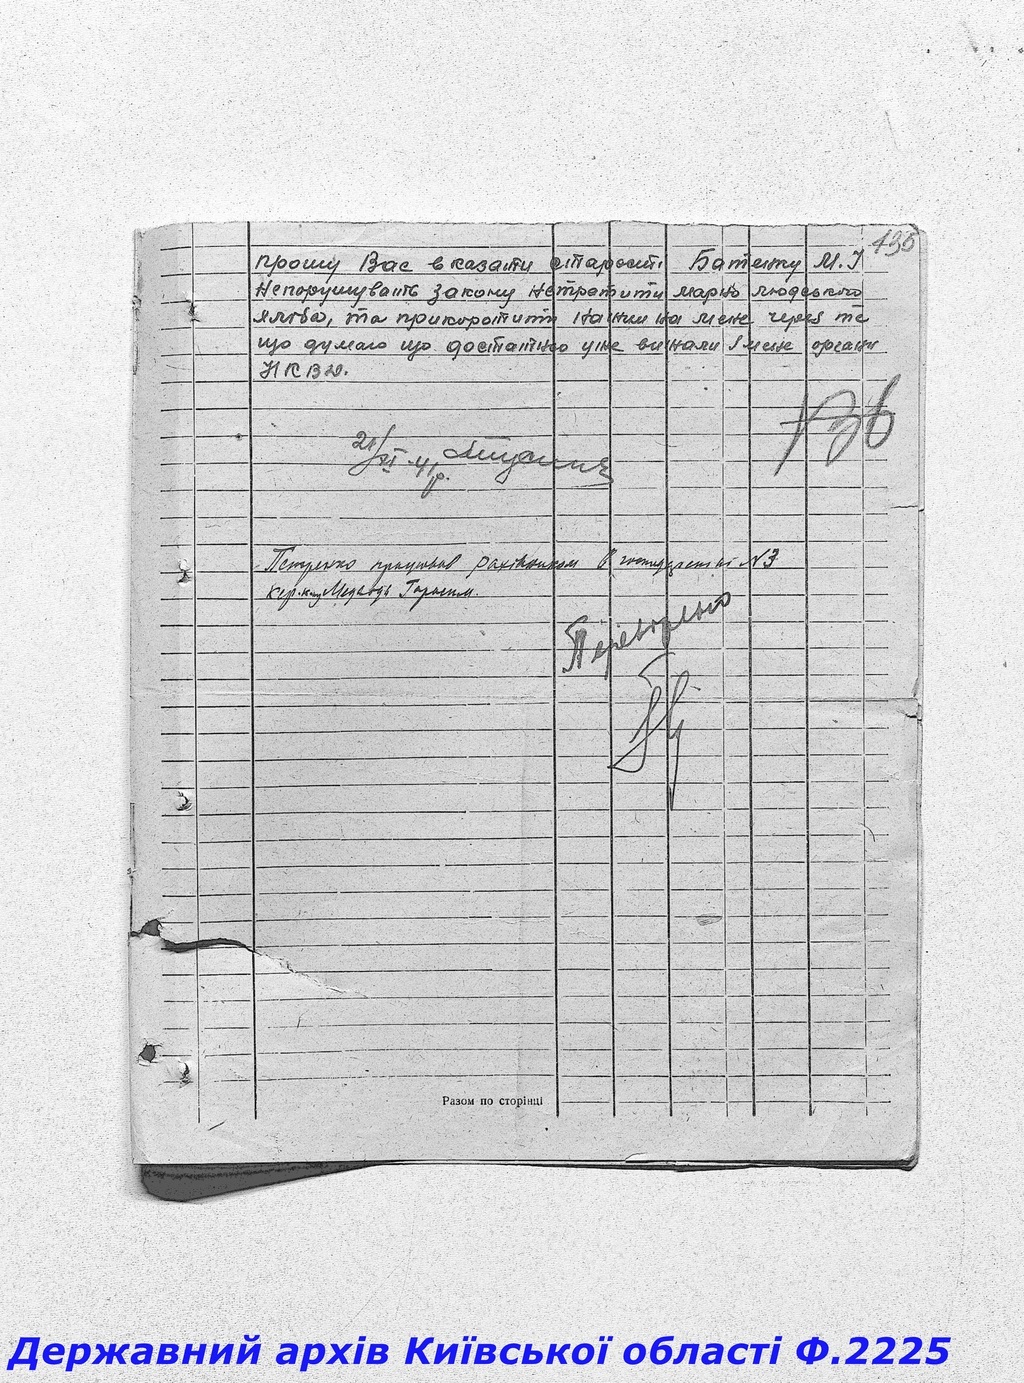 136
прошу Вас вказати старості Батечку М.І
Непорушувать закону нетратити марно людського
та прикоротити на мене через те
що думаю що достатньо уже винали з мене органи
НКВД.
136
21/XI-41р.
Петренко працював рахівником в господарстві №3
кер. Медведь Герасим.
Перевірено
Разом по сторінці
Державний архів Київської області Ф.2225